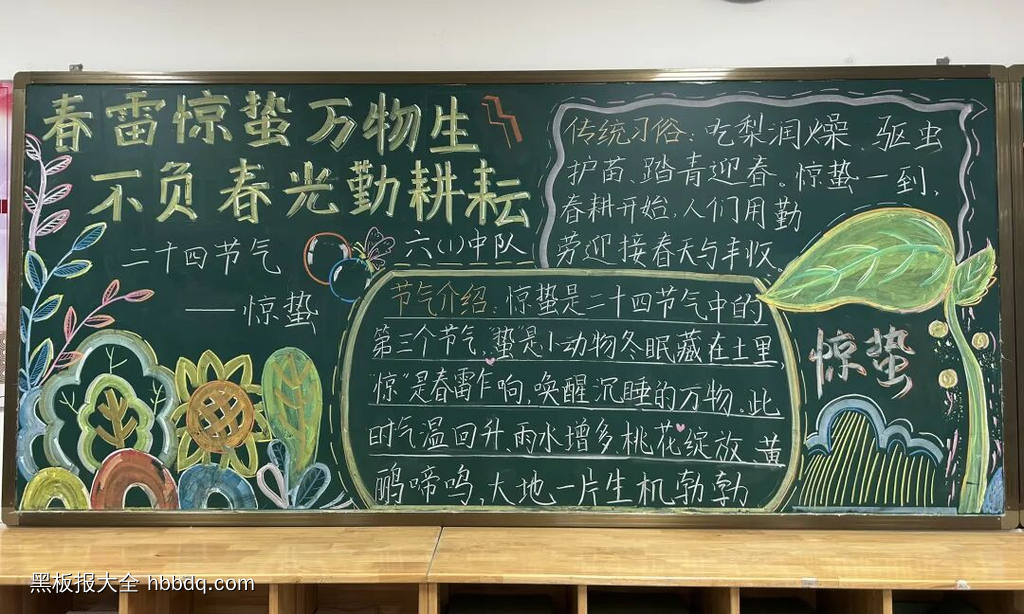 春雷惊蛰万物生
不负春光勤耕耘
二十四节气
——惊蛰
六(1)中队
传统习俗：吃梨润燥、驱虫
护苗、踏青迎春。惊蛰一到，
春耕开始，人们用勤
劳迎接春天与丰收。
节气介绍：惊蛰是二十四节气中的
第三个节气，"蛰"是小动物冬眠藏在土里，
"惊"是春雷乍响，唤醒沉睡的万物。此
时气温回升、雨水增多、桃花绽放、黄
鹂啼鸣，大地一片生机勃勃
惊蛰
黑板报大全 hbbdq.com